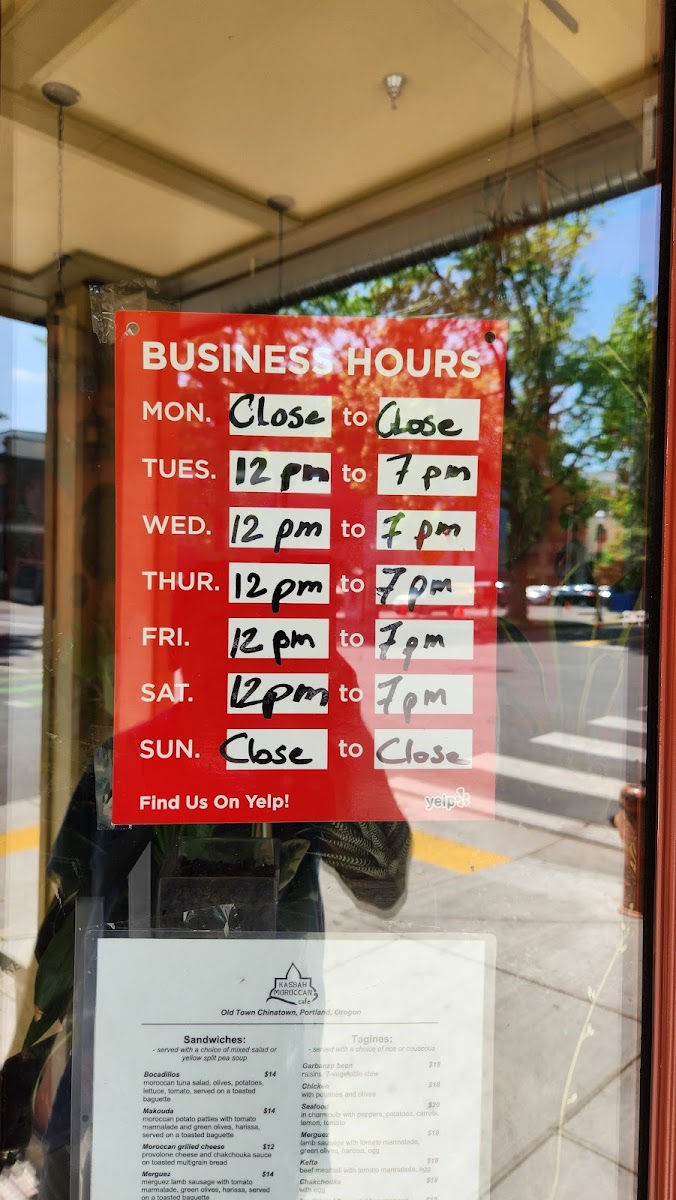 BUSINESS HOURS
MON. Close to Close
TUES. 12 pm to 7 pm
WED. 12 pm to 7 pm
THUR. 12 pm to 7 pm
FRI. 12 pm to 7 pm
SAT. 12 pm to 7 pm
SUN. Close to Close
Find Us On Yelp! yelp
KASBAH
MOROCCAN
cafe
Old Town Chinatown, Portland, Oregon
Sandwiches:
- served with a choice of mixed salad or
yellow split pea soup
Bocadillos $14
moroccan tuna salad, olives, potatoes,
lettuce, tomato, served on a toasted
baguette
Makouda $14
moroccan potato patties with tomato
marmalade and green olives, harissa,
served on a toasted baguette
Moroccan grilled cheese $12
provolone cheese and chakchouka sauce
on toasted multigrain bread
Merguez $14
merguez lamb sausage with tomato
marmalade, green olives, harissa, served
on a toasted baguette
Tagines:
- served with a choice of rice or couscous
Garbanzo bean
raisins, 7-vegetable stew
Chicken
with potatoes and olives
Seafood $20
in charmoula with peppers, potatoes, carrots,
lemon, tomato
Merguez
lamb sausage with tomato marmalade,
green olives, harissa, egg
Kefta
beef meatball with tomato marmalade, egg
Chakchouka
with egg